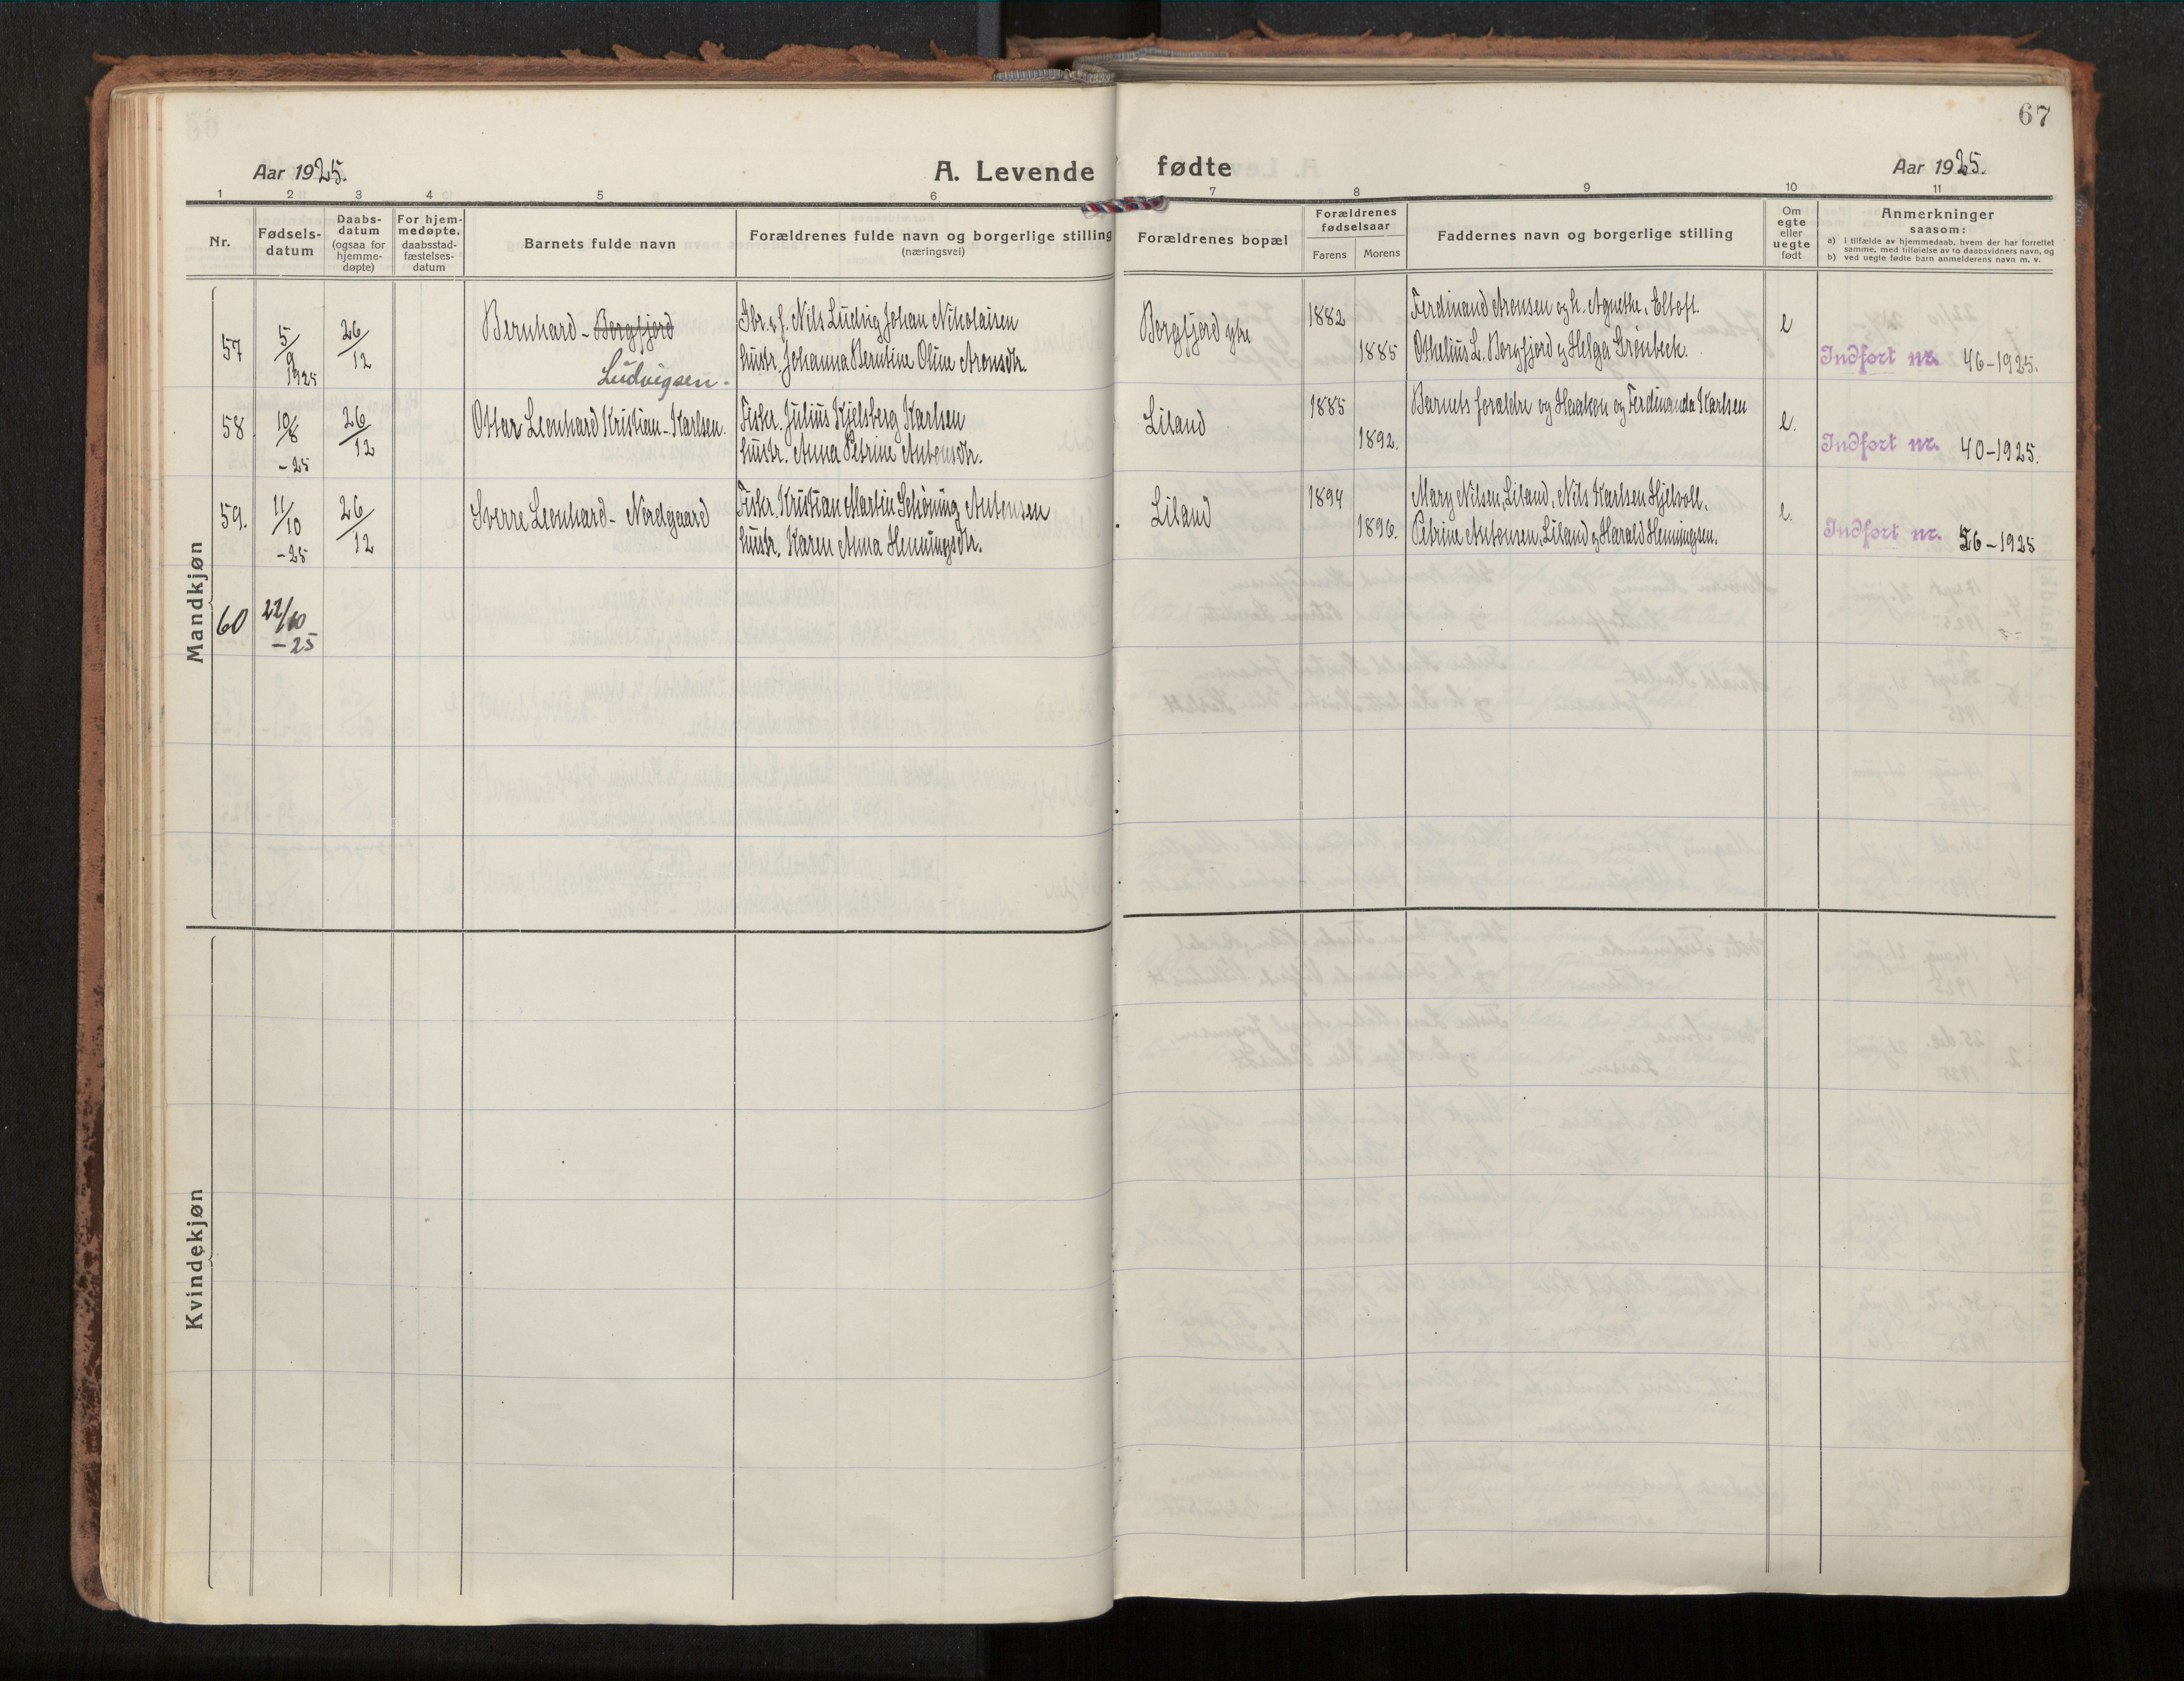 67
Aar 1925.
A. Levende fødte
Aar 1925.
1 2 3 4 5 6 7 8 9 10 11
Nr.
Fødsels-
datum
Daabs-
datum
(ogsaa for
hjemme-
døpte)
For hjem-
medøpte,
daabsstad-
fæstelses-
datum
Barnets fulde navn
Forældrenes fulde navn og borgerlige stilling
(næringsvei)
Forældrenes bopæl
Forældrenes
fødselsaar
Farens Morens
Faddernes navn og borgerlige stilling
Om
egte
eller
uegte
født
Anmerkninger
saasom:
a) i tilfælde av hjemmedaab, hvem der har forrettet
samme, med tilføielse av to daabsvidners navn, og
b) ved uegte fødte barn anmelderens navn m. v.
Mandkjøn
57 5/9 1925 26/12 Bernhard - Borgfjord
Ludvigsen -
Gbr. & f. Nils Ludvig Johan Nikolaisen
hustr. Johanna Berntine Oline Aronsdtr.
Borgfjord ytre
1882
1885
Ferdinand Aronsen og h. Agnethe, Eltoft
Othelius L. Borgfjord og Helga Grønbeck.
e
Indført nr. 46-1925.
58 10/8 -25 26/12 Ottar Leonhard Kristian - Karlsen.
Fisker. Julius Kjelsberg Karlsen
hustr. Anna Petrine Antonsdtr.
Liland
1885
1892.
Barnets forældre og Haakon og Ferdinanda Karlsen
e.
Indført nr. 40-1925.
59. 11/10 -25 26/12 Sverre Leonhard - Nordgaard
Fisker. Kristian Martin Schöning Antonsen
hustr. Karen Anna Henningsdtr.
Liland
1894
1896.
Mary Nilsen, Liland, Nils Karlsen Hjelvoll.
Petrine Antonsen, Liland og Harald Henningsen.
e.
Indført nr. 56-1925
60 22/10 -25
Kvindekjøn